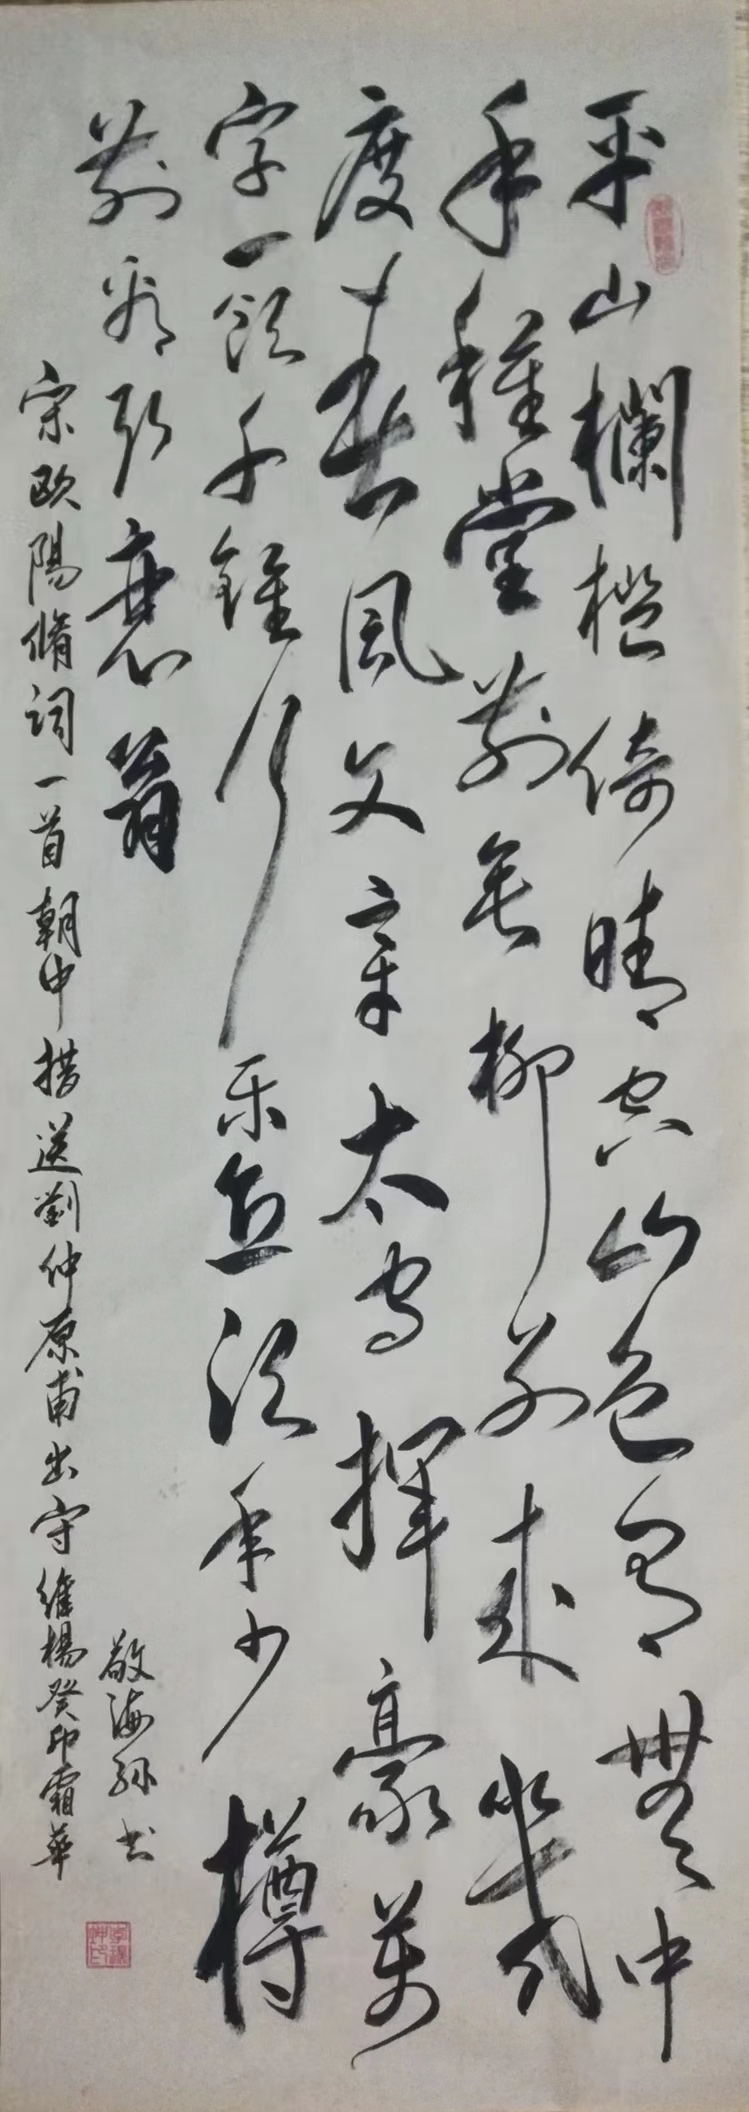 平山欄檻倚晴空山色有無中
手種堂前垂柳别来幾
度春風文章太守揮豪萬
字一飲千鍾行乐直須年少樽
前看取衰翁
宋歐陽脩詞一首朝中措送劉仲原甫出守維楊癸卯霜華
海书